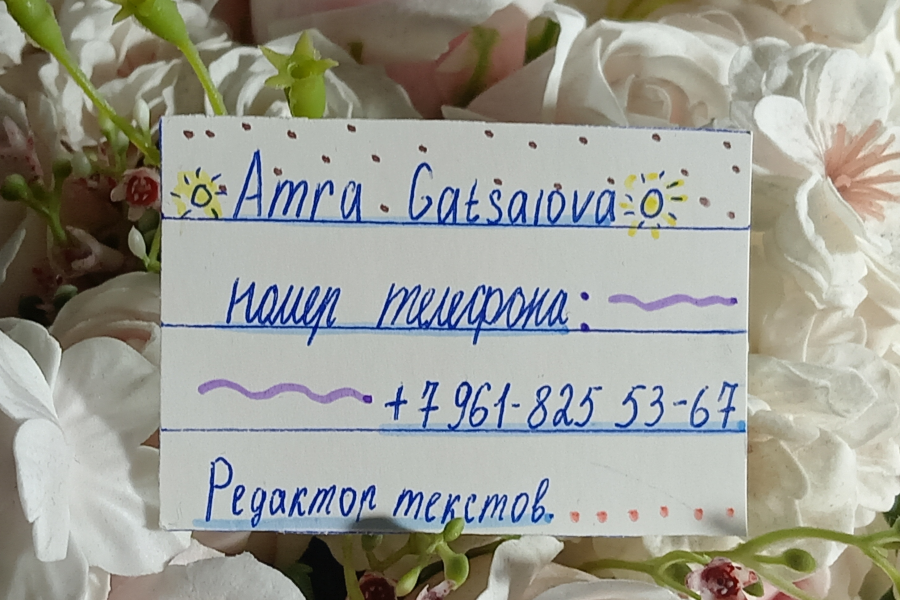 Amra Gatsaiova
номер телефона:
+7 961-825 53-67
Редактор текстов.